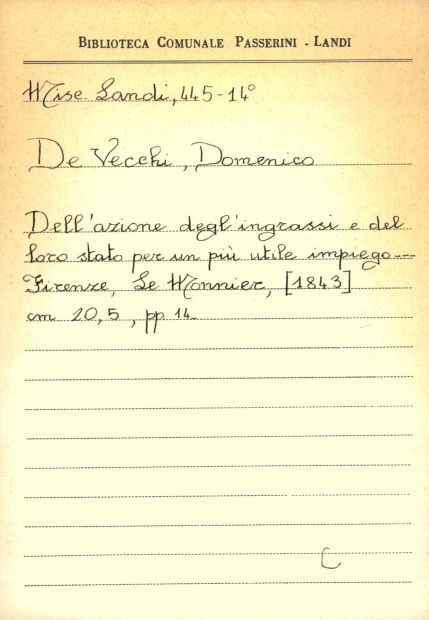 BIBLIOTECA COMUNALE PASSERINI - LANDI
Misc. Landi, 445-14°
De Vecchi, Domenico
Dell'azione degl'ingrassi e del
loro stato per un più utile impiego---
Firenze, Le Monnier, [1843]
cm 20,5, pp 14.
C